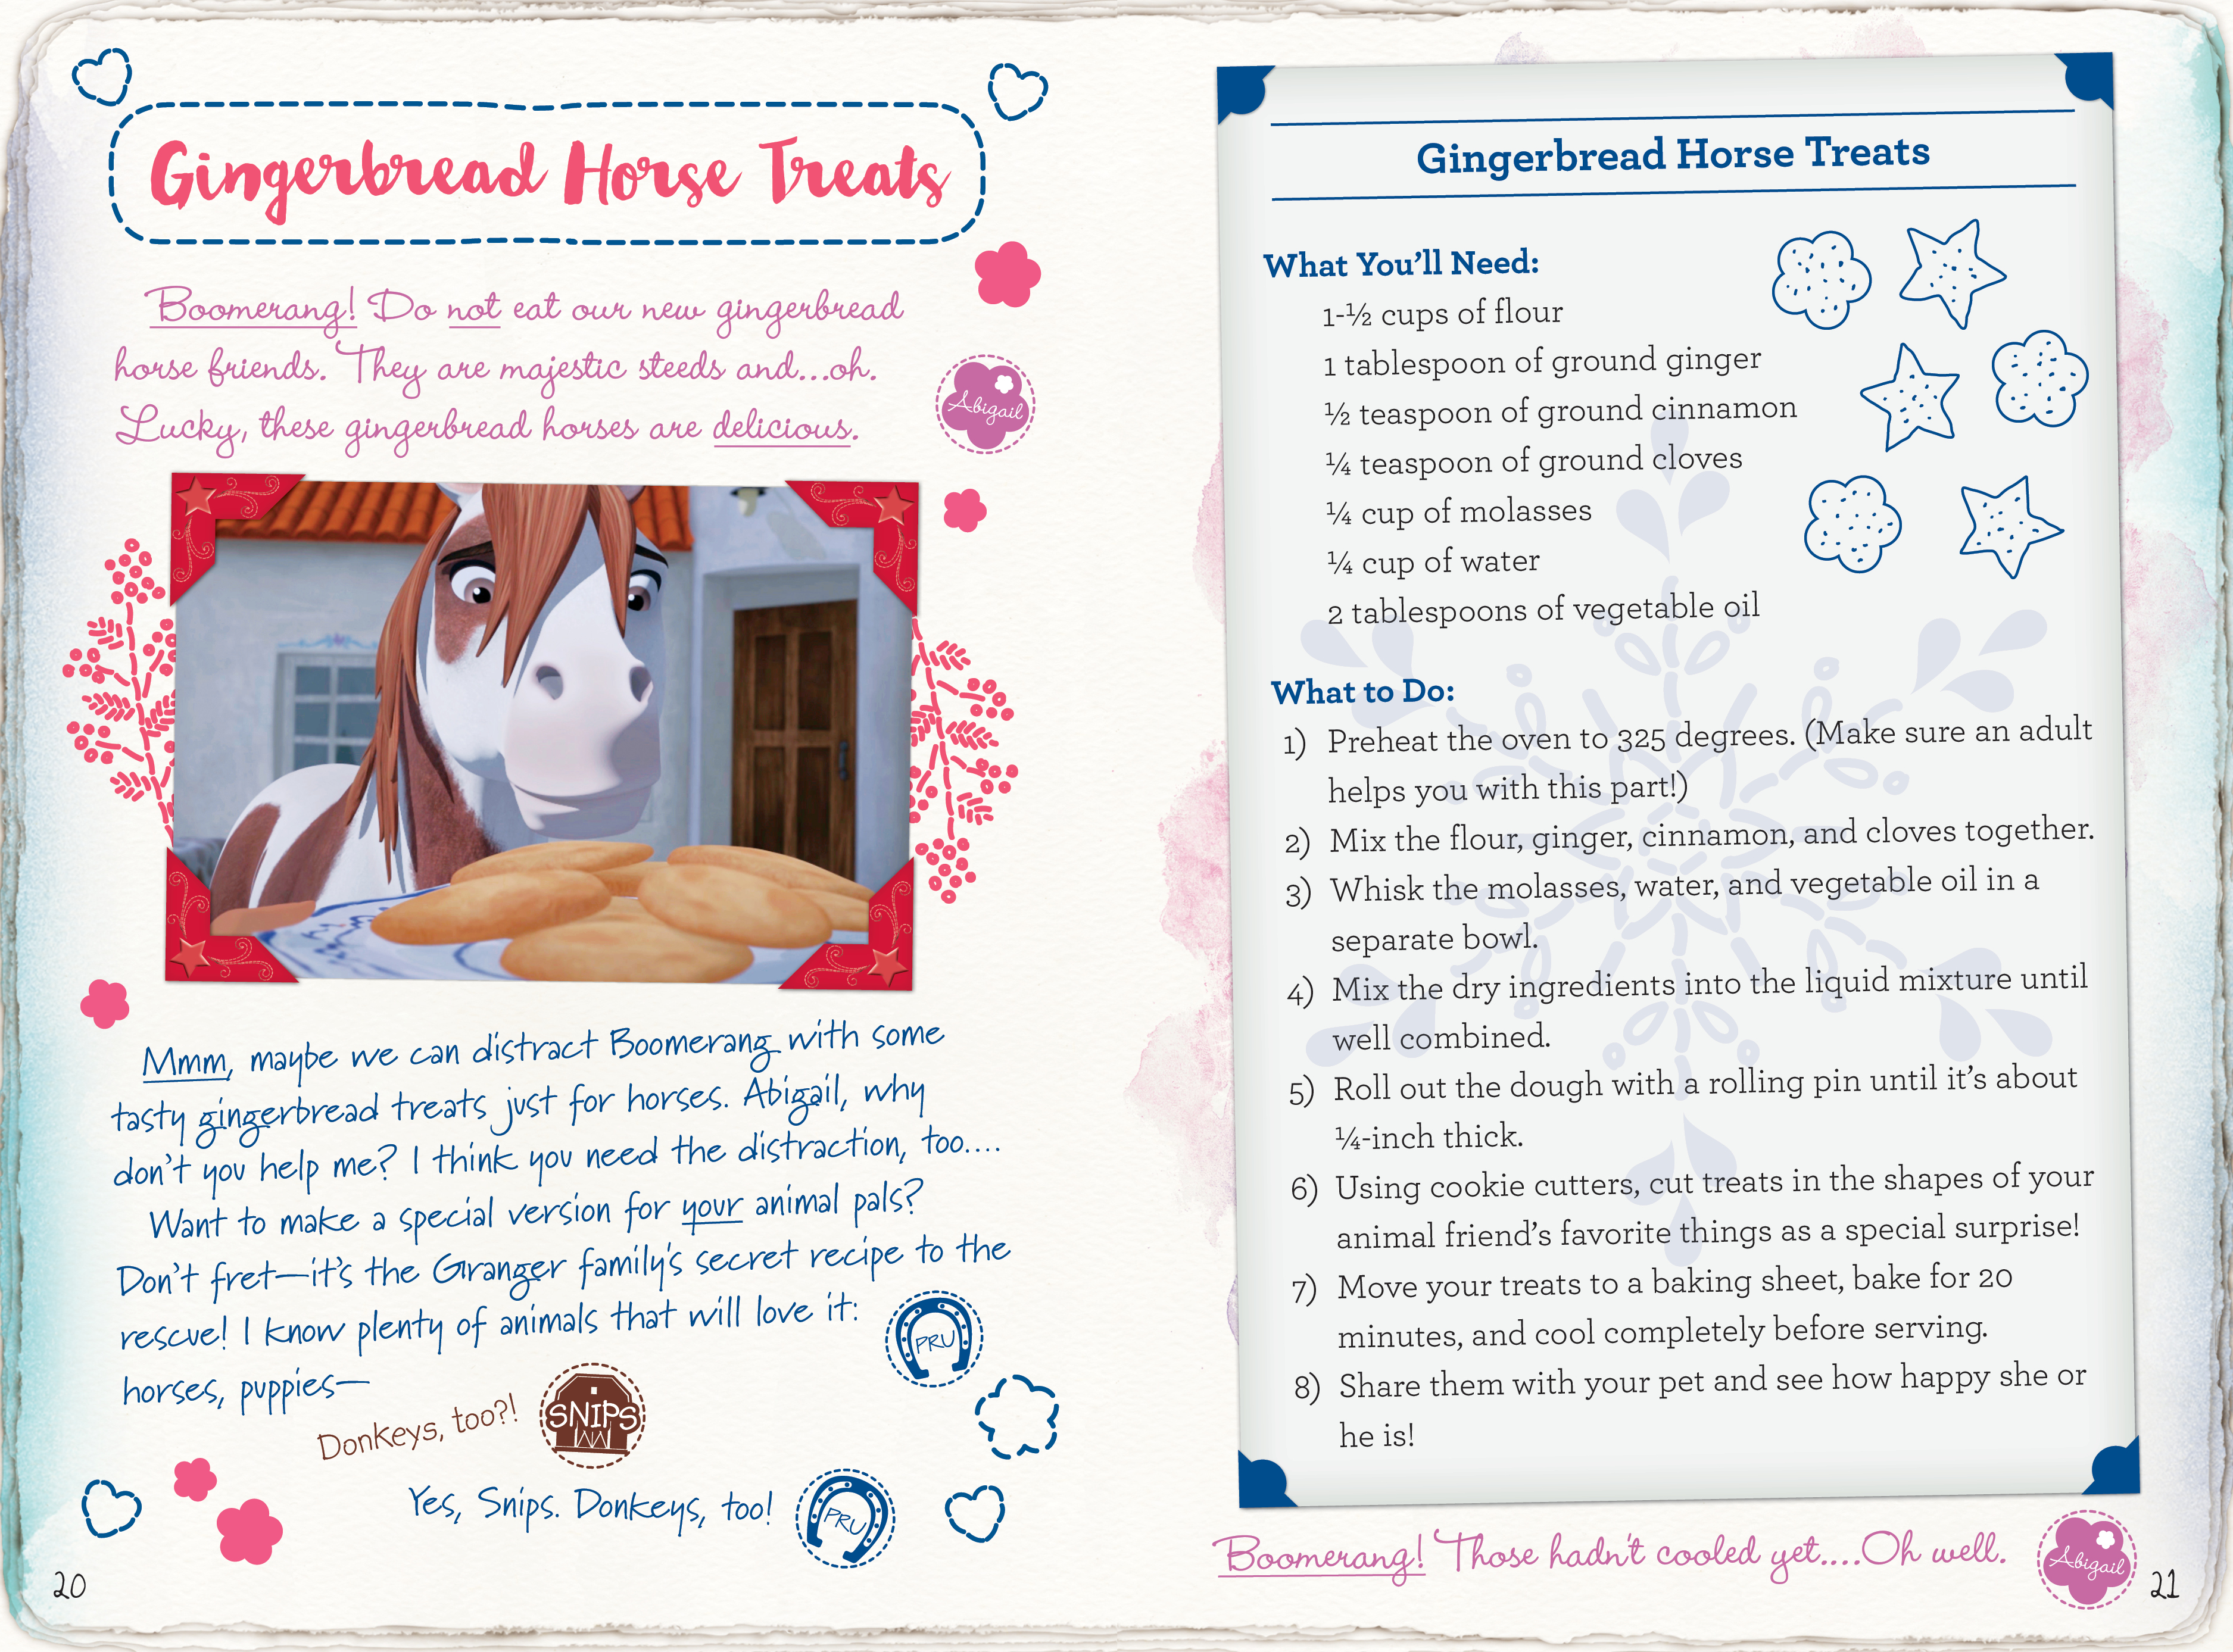 Gingerbread Horse Treats
Boomerang! Do not eat our new gingerbread
horse friends. They are majestic steeds and...oh.
Lucky, these gingerbread horses are delicious.
Abigail
Mmm, maybe we can distract Boomerang with some
tasty gingerbread treats just for horses. Abigail, why
don't you help me? I think you need the distraction, too....
Want to make a special version for your animal pals?
Don't fret—it's the Granger family's secret recipe to the
rescue! I know plenty of animals that will love it:
horses, puppies—
PRU
Donkeys, too?!
SNIPS
Yes, Snips. Donkeys, too!
PRU
20
Gingerbread Horse Treats
What You'll Need:
1-½ cups of flour
1 tablespoon of ground ginger
½ teaspoon of ground cinnamon
¼ teaspoon of ground cloves
¼ cup of molasses
¼ cup of water
2 tablespoons of vegetable oil
What to Do:
1) Preheat the oven to 325 degrees. (Make sure an adult
helps you with this part!)
2) Mix the flour, ginger, cinnamon, and cloves together.
3) Whisk the molasses, water, and vegetable oil in a
separate bowl.
4) Mix the dry ingredients into the liquid mixture until
well combined.
5) Roll out the dough with a rolling pin until it's about
¼-inch thick.
6) Using cookie cutters, cut treats in the shapes of your
animal friend's favorite things as a special surprise!
7) Move your treats to a baking sheet, bake for 20
minutes, and cool completely before serving.
8) Share them with your pet and see how happy she or
he is!
Boomerang! Those hadn't cooled yet....Oh well.
Abigail
21